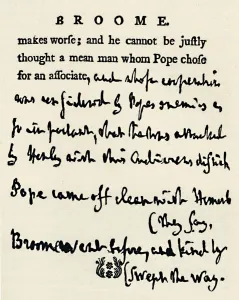 BROOME.
makes worse; and he cannot be justly
thought a mean man whom Pope chose
for an associate, and whose cooperation
was considered by Popes enemies as
so important, that he was attacked
by Henly with this ludicrous distich
Pope came off clean with Homer
(they say,
Broome went before, and kindly
(swept the way.